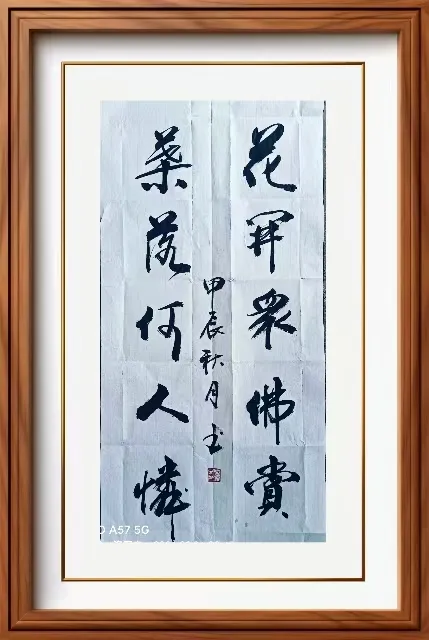 花開眾佛賞
葉落何人憐
甲辰秋月
A57 5G